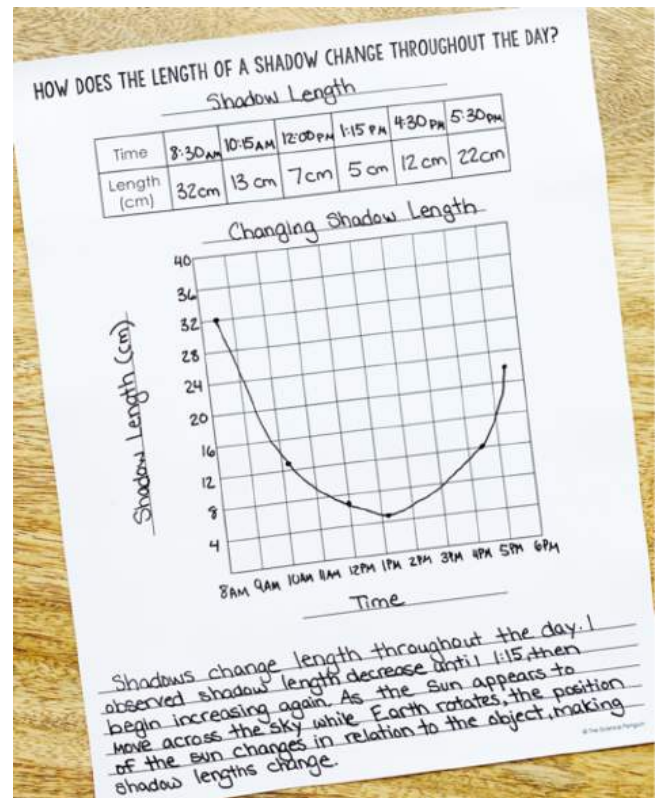 HOW DOES THE LENGTH OF A SHADOW CHANGE THROUGHOUT THE DAY?
Shadow Length
Time 8:30AM 10:15AM 12:00PM 1:15 PM 4:30PM 5:30PM
Length (cm) 32cm 13 cm 7cm 5 cm 12 cm 22cm
Changing Shadow Length
Shadow Length (cm)
40
36
32
28
24
20
16
12
8
4
8AM 9AM 10AM 11AM 12PM 1PM 2PM 3PM 4PM 5PM 6PM
Time
Shadows change length throughout the day. I
observed shadow length decrease until 1:15, then
begin increasing again. As the sun appears to
move across the sky while Earth rotates, the position
of the sun changes in relation to the object, making
shadow lengths change.
© The Science Penguin